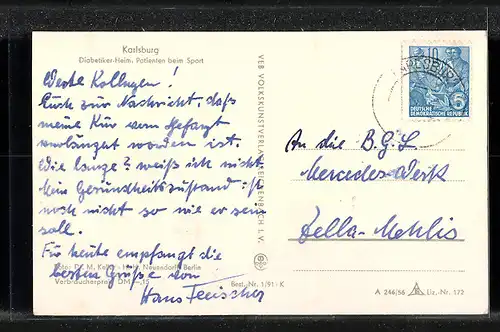 Karlsburg
Diabetiker-Heim, Patienten beim Sport
Werte Kollegen!
Euch zur Nachricht, daß
meine Kur vom Chefarzt
verlängert worden ist.
Wie lange? weiß ich nicht.
Mein Gesundheitszustand ist
noch nicht so wie er sein
soll.
Für heute empfangt die
besten Grüße von
Hans Fleischer
Foto: Dr. M. Neuendorf, Berlin
Verbraucherpreis DM -,15
Best.-Nr. 1/91-K
VEB VOLKSKUNSTVERLAG REICHENBACH I. V.
10
DEUTSCHE
DEMOKRATISCHE REPUBLIK
5
An die B.G.L.
Mercedes-Werk
Zella-Mehlis
A 246/56 Liz.-Nr. 172